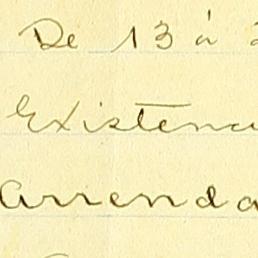 De 13 á
Existenci
Arrenda